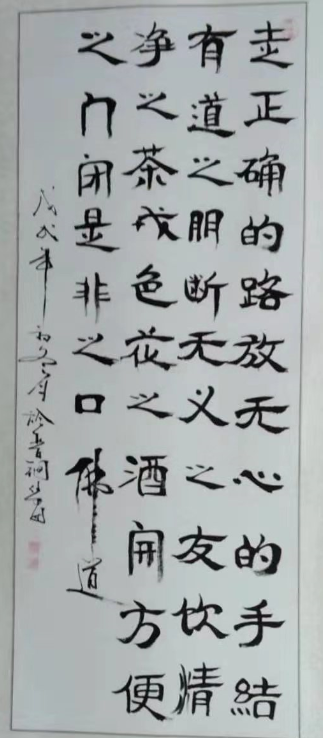 走正确的路放无心的手結
有道之朋断无义之友饮清
净之茶戒色花之酒開方便
之门闭是非之口 佛道
戊戌年